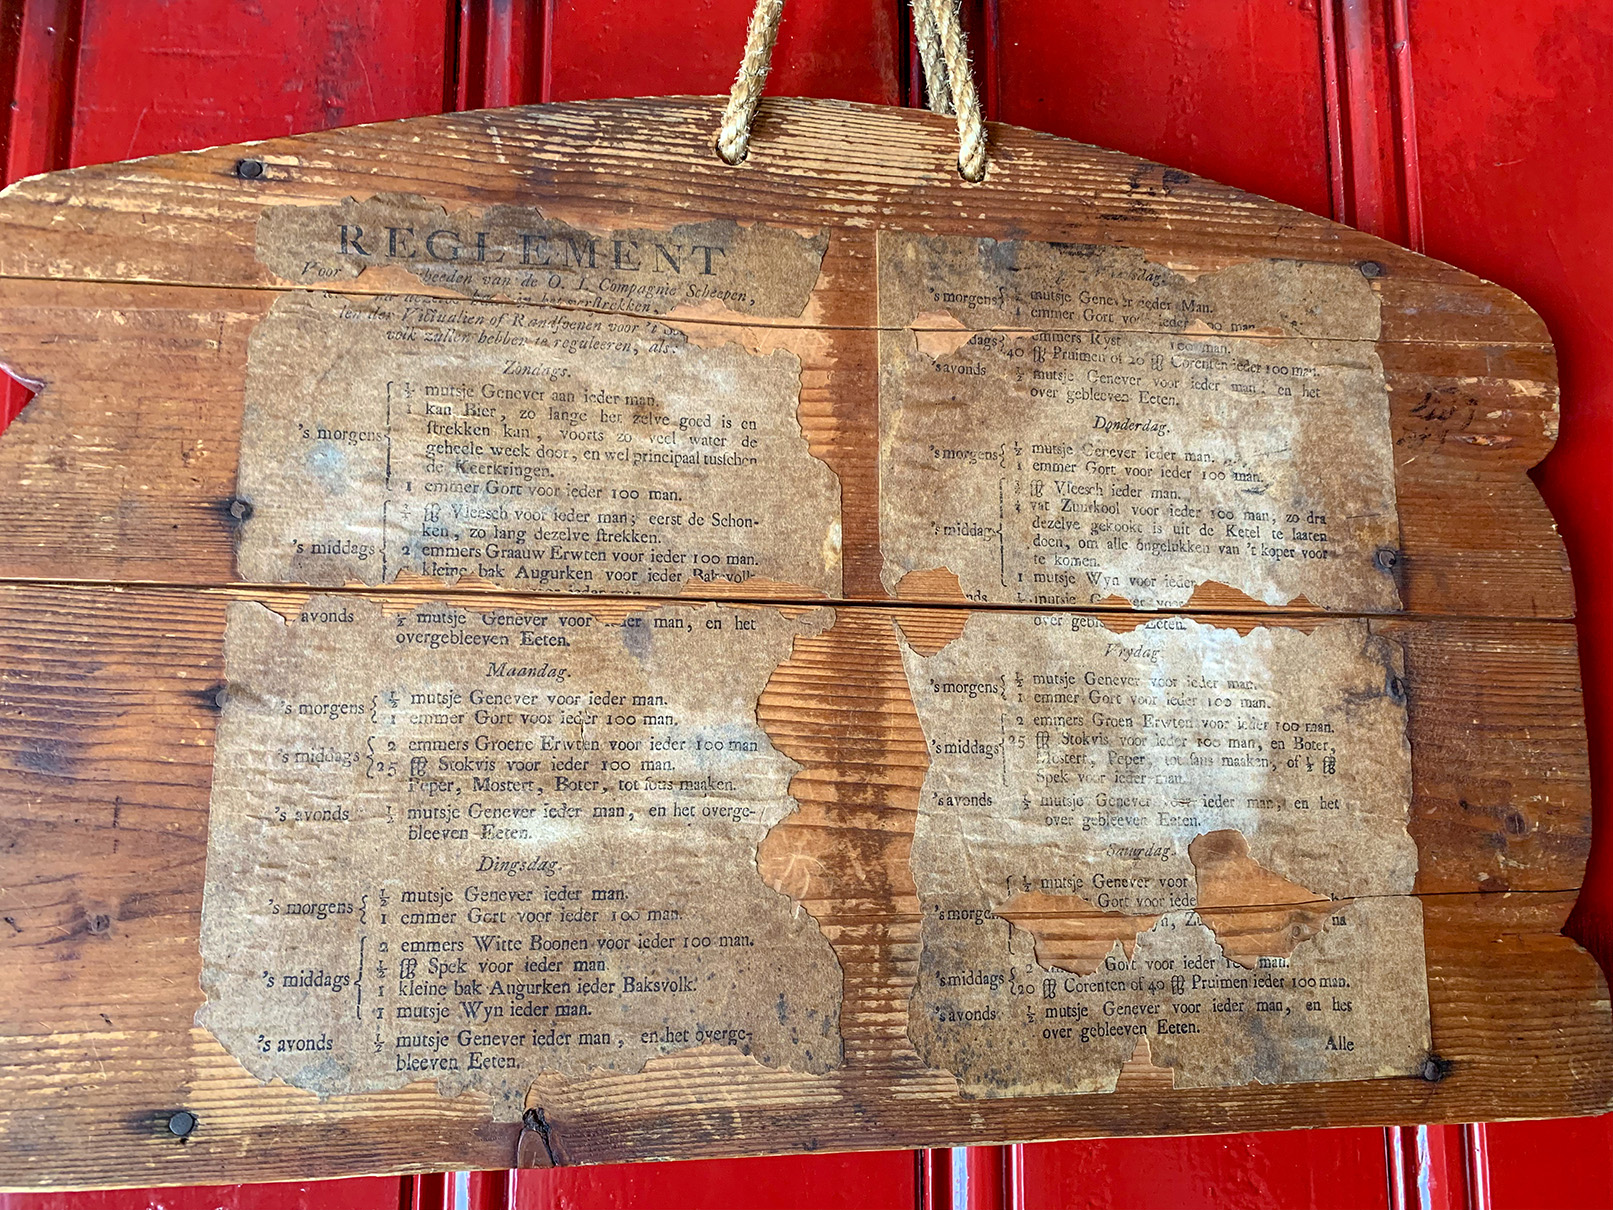 REGLEMENT
Voor van de O. I. Compagnie Scheepen,
in het verstrekken,
len der Victualien of Randsoenen voor 't
volk zullen hebben te reguleeren, als:
Zondags.
's morgens
½ mutsje Genever aan ieder man.
1 kan Bier, zo lange het zelve goed is en
strekken kan, voorts zo veel water de
geheele week door, en wel principaal tusschen
de Keerkringen.
1 emmer Gort voor ieder 100 man.
's middags
½ ℔ Vleesch voor ieder man; eerst de Schon-
ken, zo lang dezelve strekken.
2 emmers Graauw Erwten voor ieder 100 man.
kleine bak Augurken voor ieder Baksvolk
avonds ½ mutsje Genever voor ieder man, en het
overgebleeven Eeten.
Maandag.
's morgens
½ mutsje Genever voor ieder man.
1 emmer Gort voor ieder 100 man.
's middags
2 emmers Groene Erwten voor ieder 100 man
25 ℔ Stokvis voor ieder 100 man.
Peper, Mostert, Boter, tot sous maaken.
's avonds ½ mutsje Genever ieder man, en het overge-
bleeven Eeten.
Dingsdag.
's morgens
½ mutsje Genever ieder man.
1 emmer Gort voor ieder 100 man.
's middags
2 emmers Witte Boonen voor ieder 100 man.
½ ℔ Spek voor ieder man
1 kleine bak Augurken ieder Baksvolk.
1 mutsje Wyn ieder man.
's avonds ½ mutsje Genever ieder man, en het overge-
bleeven Eeten.
's morgens
½ mutsje Genever ieder Man.
1 emmer Gort voor ieder 100 man
dags
emmers Ryst 100 man.
40 ℔ Pruimen of 20 ℔ Corenten ieder 100 man.
's avonds ½ mutsje Genever voor ieder man, en het
over gebleeven Eeten.
Donderdag.
's morgens
½ mutsje Genever ieder man.
1 emmer Gort voor ieder 100 man.
's middags
½ ℔ Vleesch ieder man.
¼ vat Zuurkool voor ieder 100 man, zo dra
dezelve gekookt is uit de Ketel te laaten
doen, om alle ongelukken van 't koper voor
te komen.
1 mutsje Wyn voor ieder
½ mutsje G voor
over geble Eeten.
Vrydag
's morgens
½ mutsje Genever voor ieder man.
1 emmer Gort voor ieder 100 man.
's middags
2 emmers Groen Erwten voor ieder 100 man.
25 ℔ Stokvis voor ieder 100 man, en Boter,
Mostert, Peper, tot sous maaken, of ½ ℔
Spek voor ieder man
's avonds ½ mutsje Genever voor ieder man, en het
over gebleeven Eeten.
Saturdag.
's morgen
½ mutsje Genever voor
Gort voor iede
na
's middags
2 Gort voor ieder 100 man.
20 ℔ Corenten of 40 ℔ Pruimen ieder 100 man.
's avonds ½ mutsje Genever voor ieder man, en het
over gebleeven Eeten.
Alle